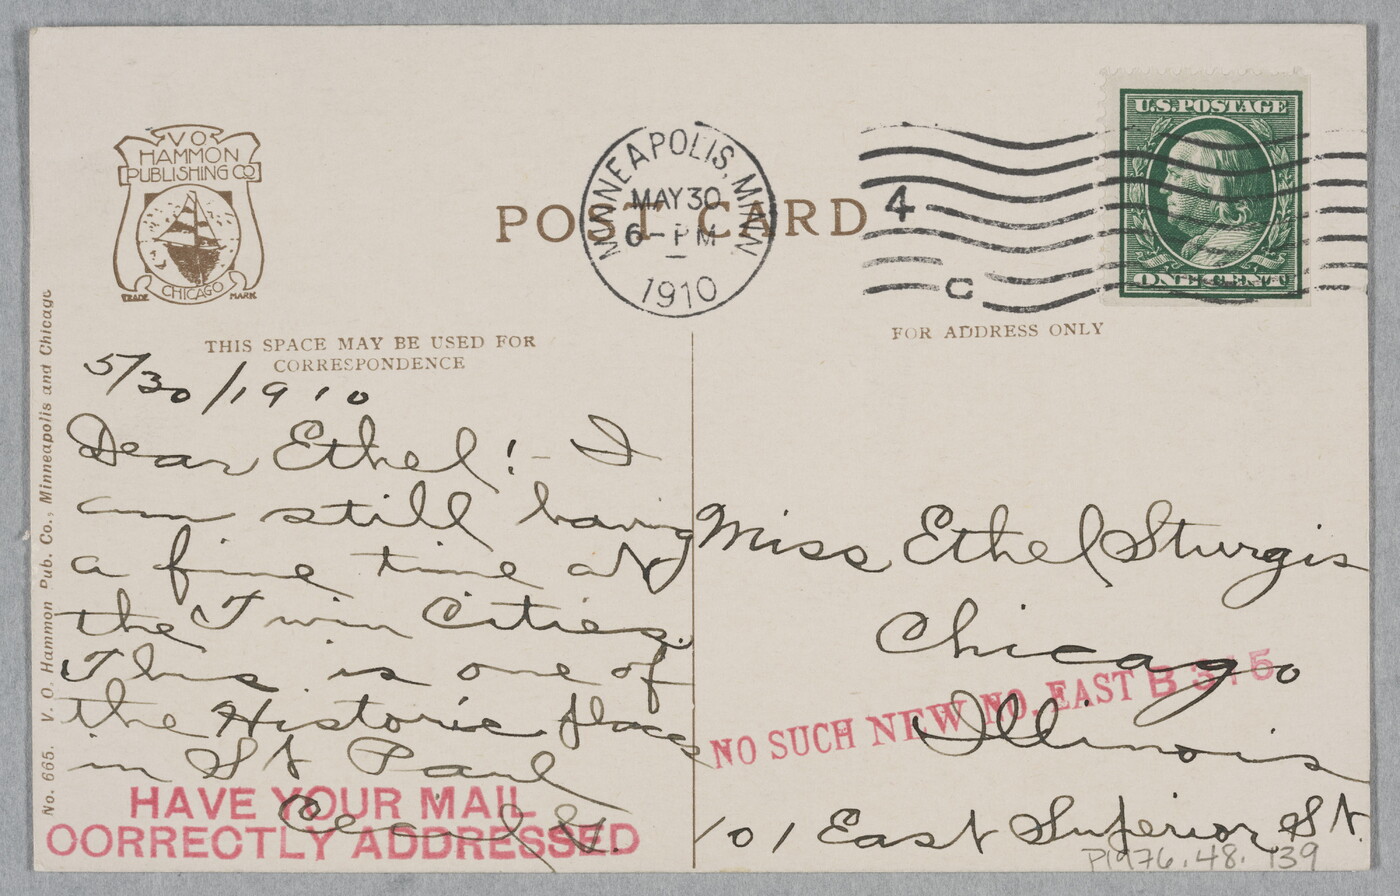 V O
HAMMON
PUBLISHING CO
CHICAGO
TRADE MARK
POST CARD
MINNEAPOLIS, MINN.
MAY 30
6 - PM
1910
4
C
U.S. POSTAGE
ONE CENT
THIS SPACE MAY BE USED FOR
CORRESPONDENCE
FOR ADDRESS ONLY
5/30/1910
Dear Ethel! - I
am still having
a fine time at
the Twin Cities.
This is one of
the Historic places
in St Paul
Cecil G.
HAVE YOUR MAIL
CORRECTLY ADDRESSED
Miss Ethel Sturgis
Chicago
Illinois
101 East Superior St.
NO SUCH NEW NO. EAST B 315
P1976.48.139
No. 665. V. O. Hammon Pub. Co., Minneapolis and Chicago